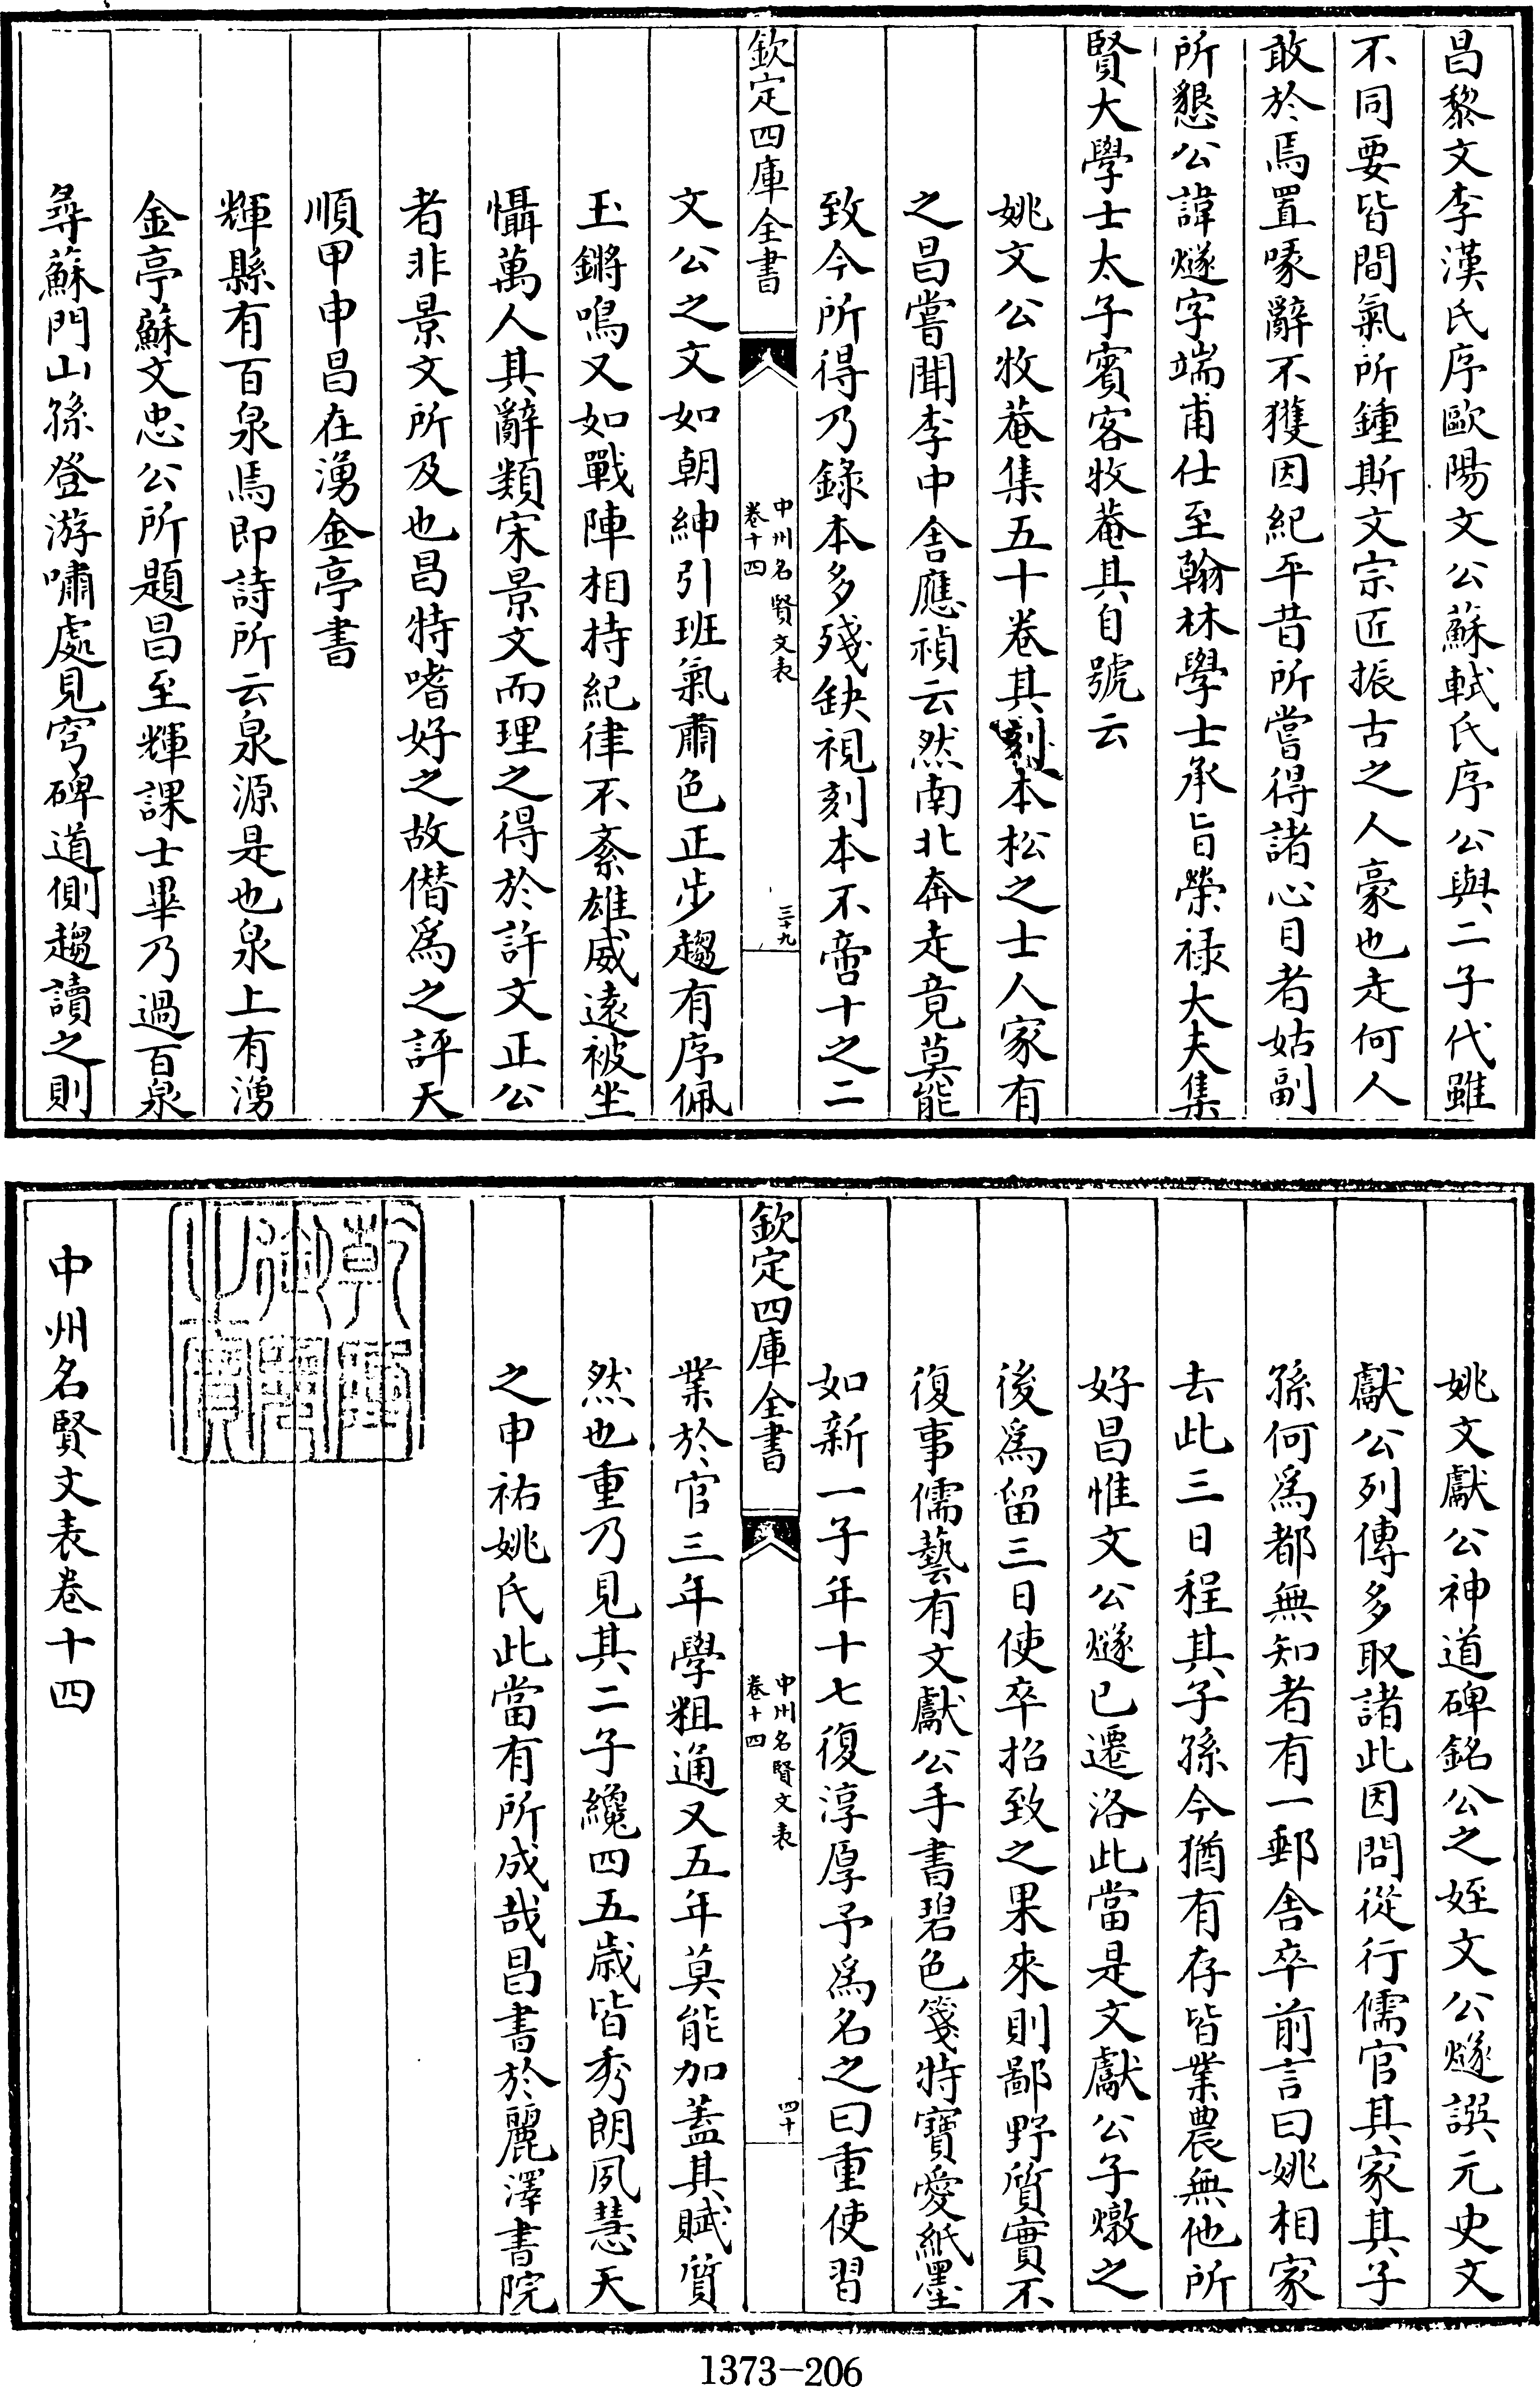 昌黎文李漢氏序歐陽文公蘇軾氏序公與二子代雖
不同要皆間氣所鍾斯文宗匠振古之人豪也走何人
敢於焉置喙辭不獲因紀平昔所嘗得諸心目者姑副
所懇公諱燧字端甫仕至翰林學士承旨榮祿大夫集
賢大學士太子賓客牧菴其自號云
姚文公牧菴集五十卷其刻本松之士人家有
之昌嘗聞李中舍應禎云然南北奔走竟莫能
致今所得乃錄本多殘缺視刻本不啻十之二
欽定四庫全書
中州名賢文表
卷十四
三十九
文公之文如朝紳引班氣肅色正步趨有序佩
玉鏘鳴又如戰陣相持紀律不紊雄威遠被坐
懾萬人其辭類宋景文而理之得於許文正公
者非景文所及也昌特嗜好之故僭爲之評天
順甲申昌在湧金亭書
輝縣有百泉焉即詩所云泉源是也泉上有湧
金亭蘇文忠公所題昌至輝課士畢乃過百泉
尋蘇門山孫登游嘯處見穹碑道側趨讀之則
姚文獻公神道碑銘公之姪文公燧譔元史文
獻公列傳多取諸此因問從行儒官其家其子
孫何爲都無知者有一郵舍卒前言曰姚相家
去此三日程其子孫今猶有存皆業農無他所
好昌惟文公燧已遷洛此當是文獻公子燉之
後爲留三日使卒招致之果來則鄙野質實不
復事儒藝有文獻公手書碧色箋特寶愛紙墨
如新一子年十七復淳厚予爲名之曰重使習
欽定四庫全書
中州名賢文表
卷十四
四十
業於官三年學粗通又五年莫能加蓋其賦質
然也重乃見其二子纔四五歲皆秀朗夙慧天
之申祐姚氏此當有所成哉昌書於麗澤書院
乾隆御覽之寶
中州名賢文表卷十四
1373-206